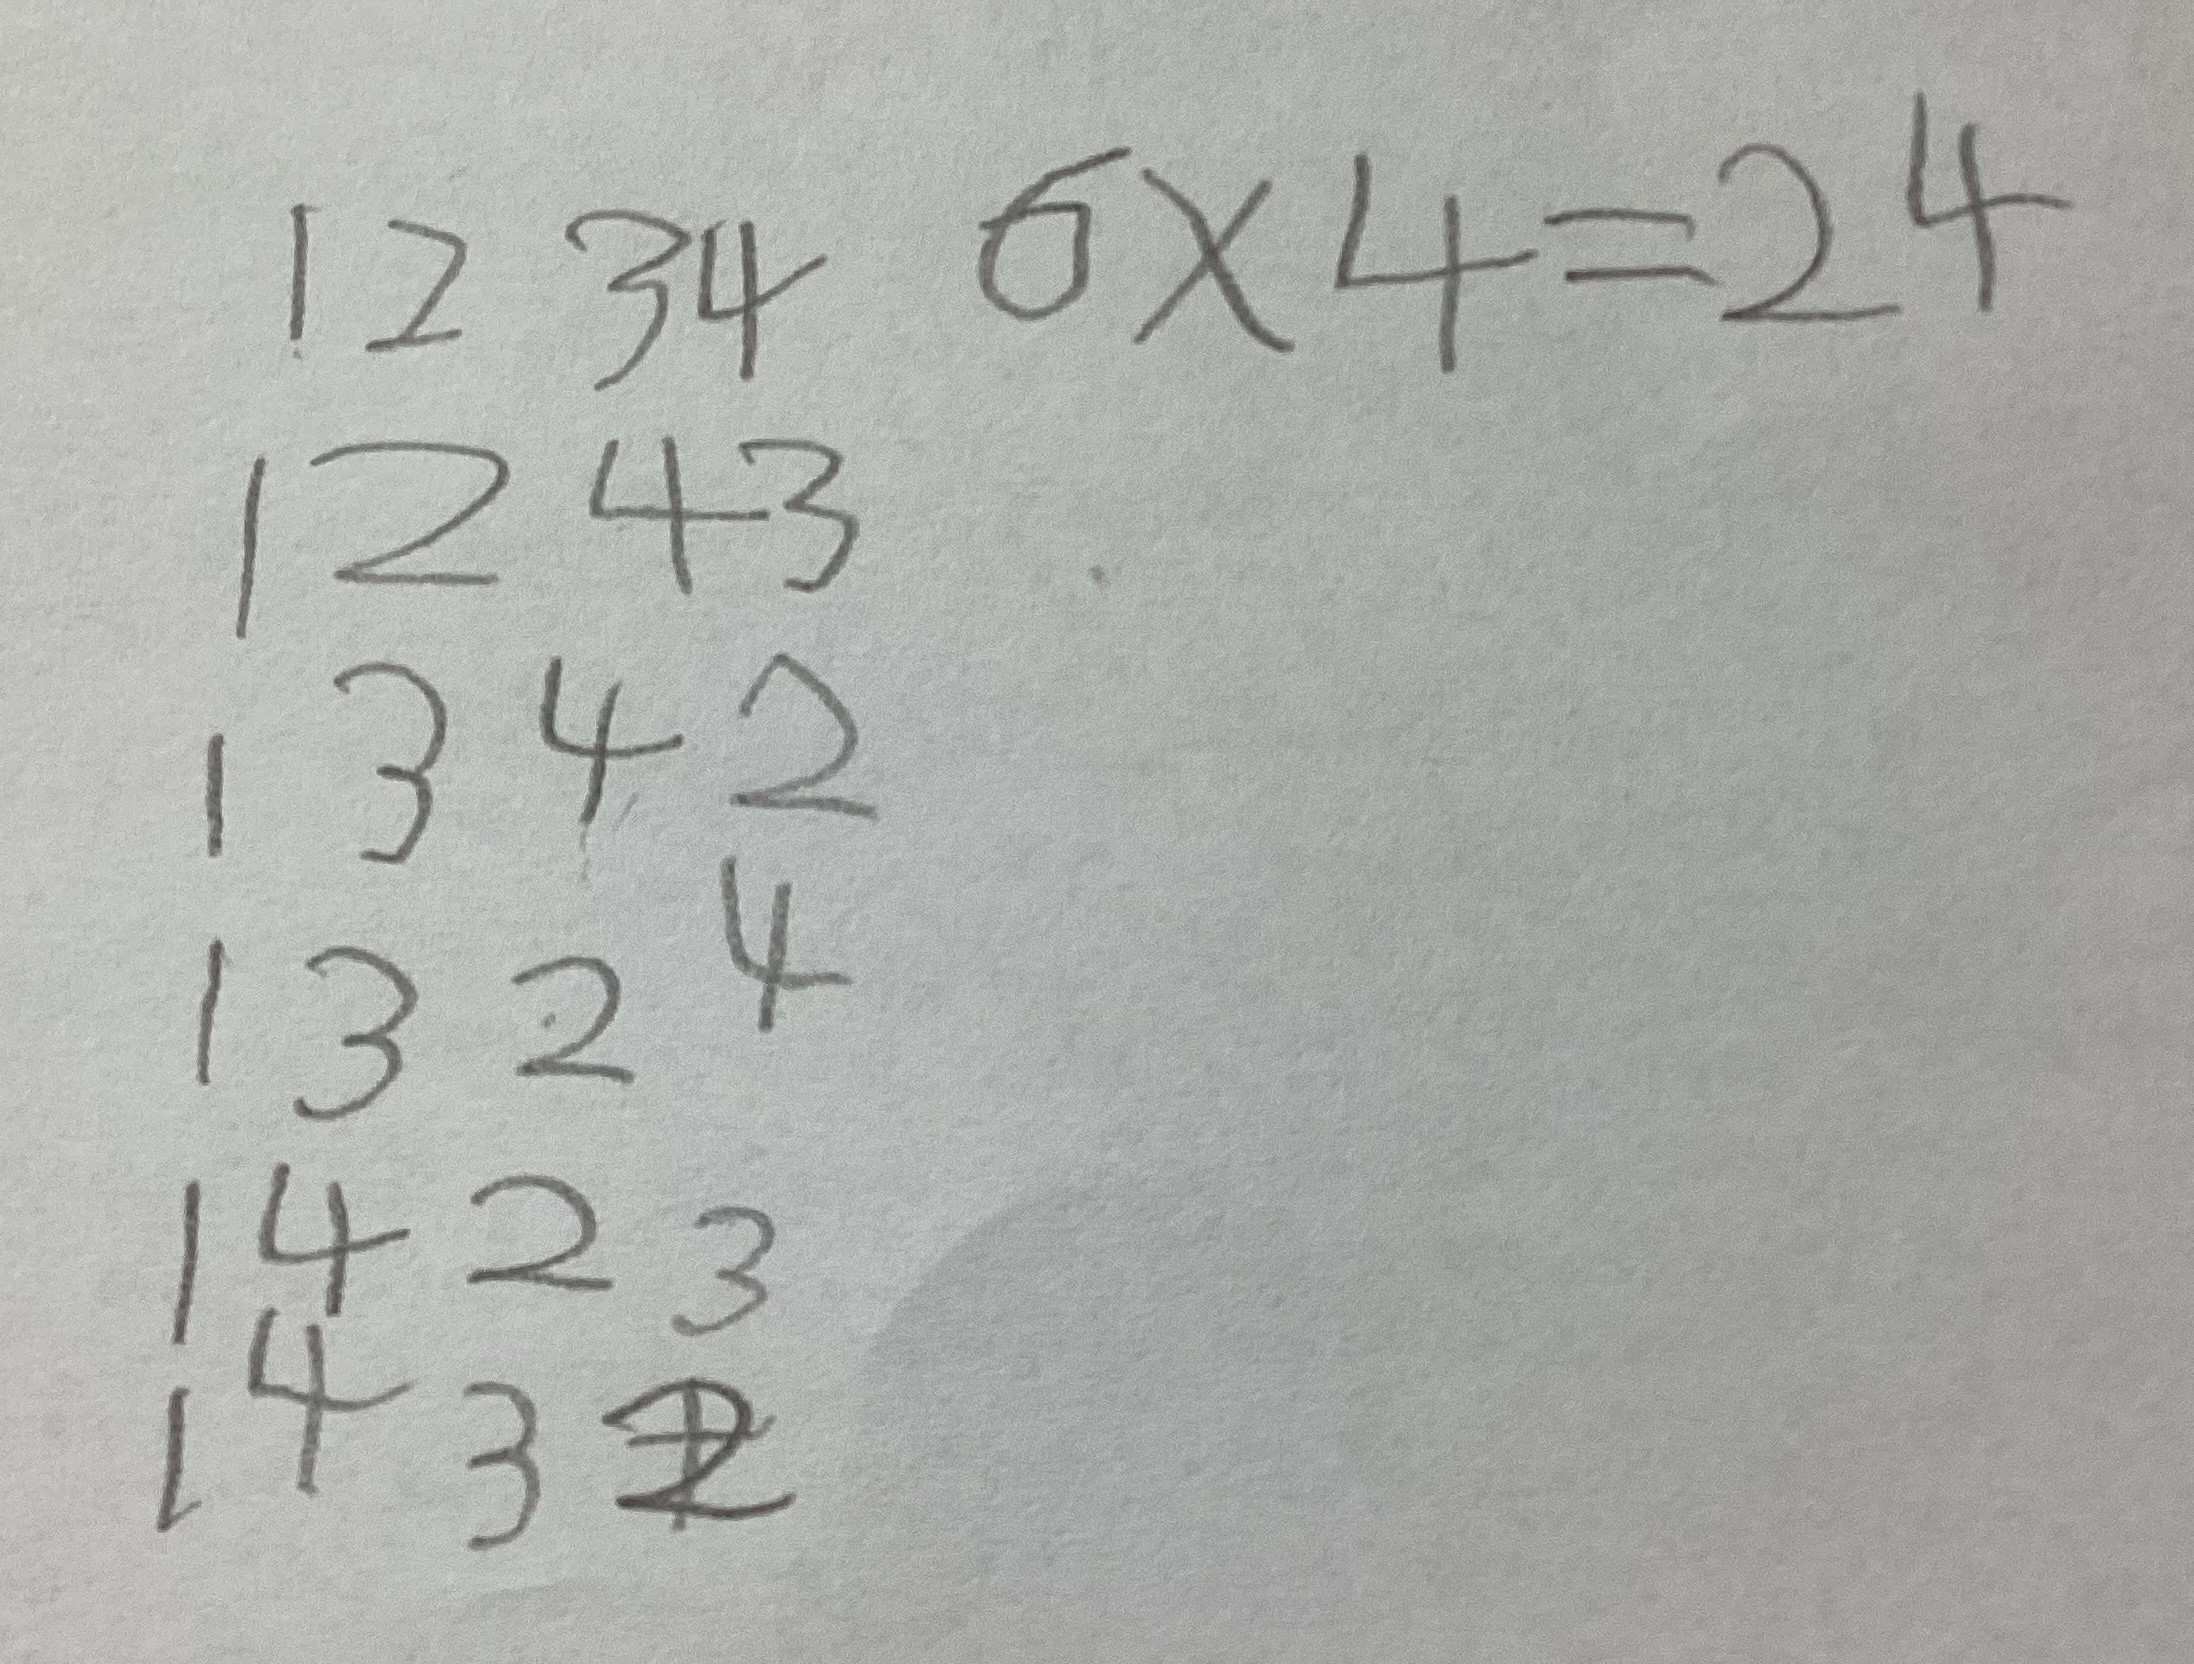 1 2 3 4 6×4=24
1 2 4 3
1 3 4 2
1 3 2 4
1 4 2 3
1 4 3 2